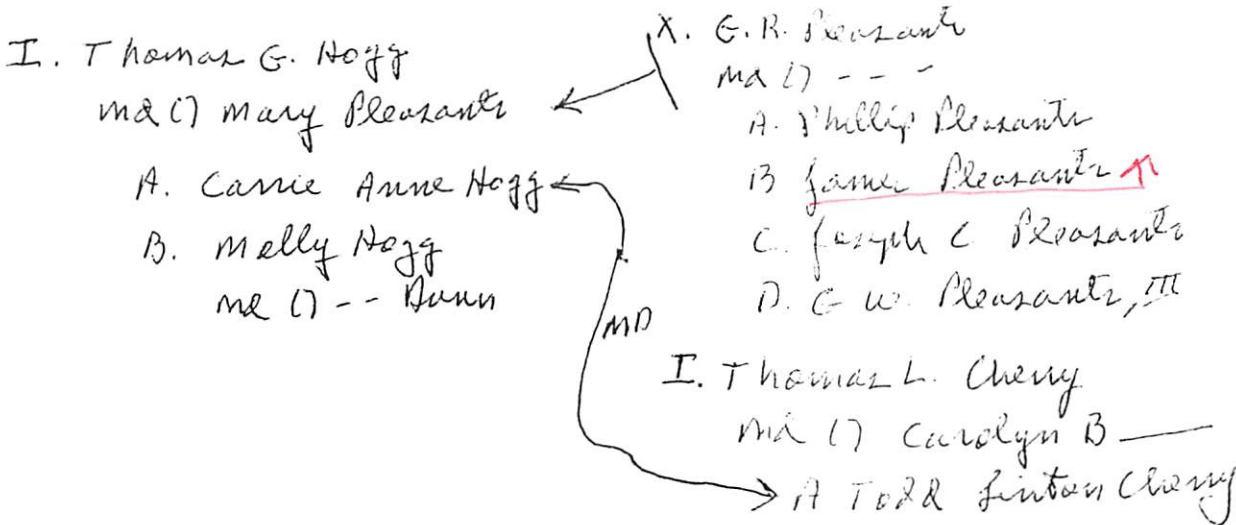 I. Thomas G. Hogg
md () Mary Pleasants
A. Carrie Anne Hogg
B. Melly Hogg
md () -- Dunn
MD
X. G.R. Pleasants
md () - - -
A. Phillip Pleasants
B James Pleasants
C. Joseph C Pleasants
D. G W. Pleasants, III
I. Thomas L. Cherry
md () Carolyn B —
A Todd Linton Cherry